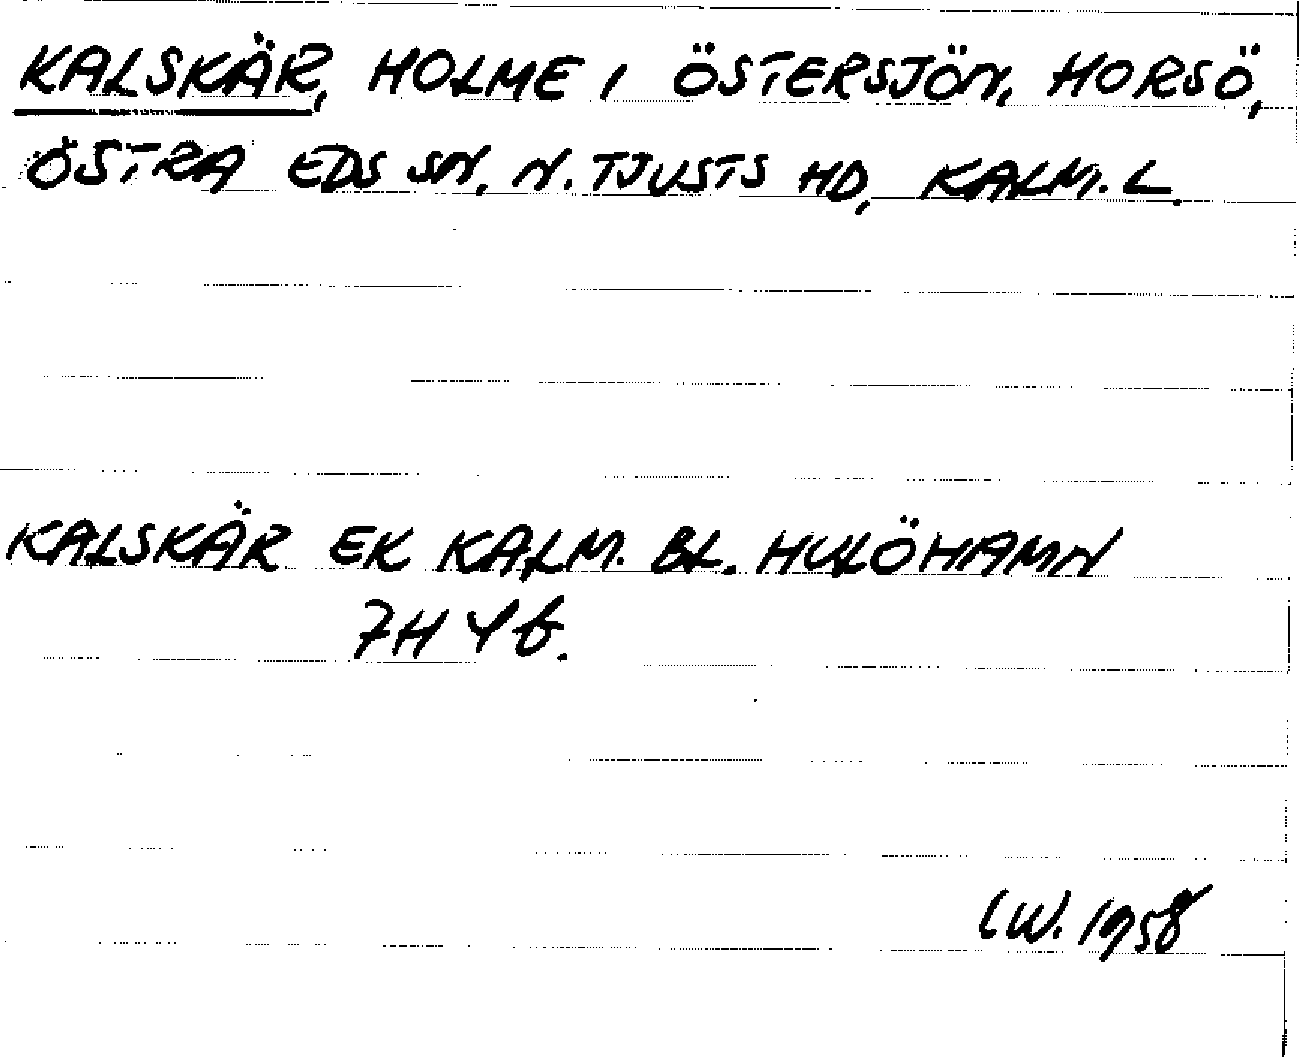 KALSKÄR, HOLME I ÖSTERSJÖN, HORSÖ,
ÖSTRA EDS SN, N. TJUSTS HD, KALM. L.
KALSKÄR EK KALM. BL. HULÖHAMN
7H 4b.
LW. 1958